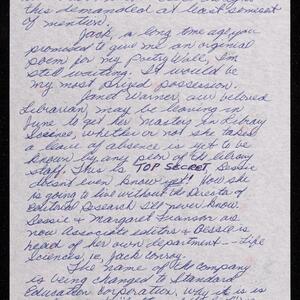 this demanded at least semisot
of mention.
Jack, a long time ago you
promised to give me an original
poem for my Poetry Wall, I'm
still waiting. It would be
my most prized possession.
Janet Warner, our beloved
Librarian may be leaving in
June to get her masters in Library
Science, whether or not she takes
a leave of absence is yet to be
known by any peon of the library
staff. This is TOP SECRET, Bessie
doesn't even know yet! How she
is going to live without the Director of
Editorial Research I'll never know.
Bessie & Margaret are
now Associate editors & Bessie is
head of her own department -- Life
Sciences, ie, Jack Conroy.
The name of the Company
is being changed to Standard
Education Corporation, why it is is